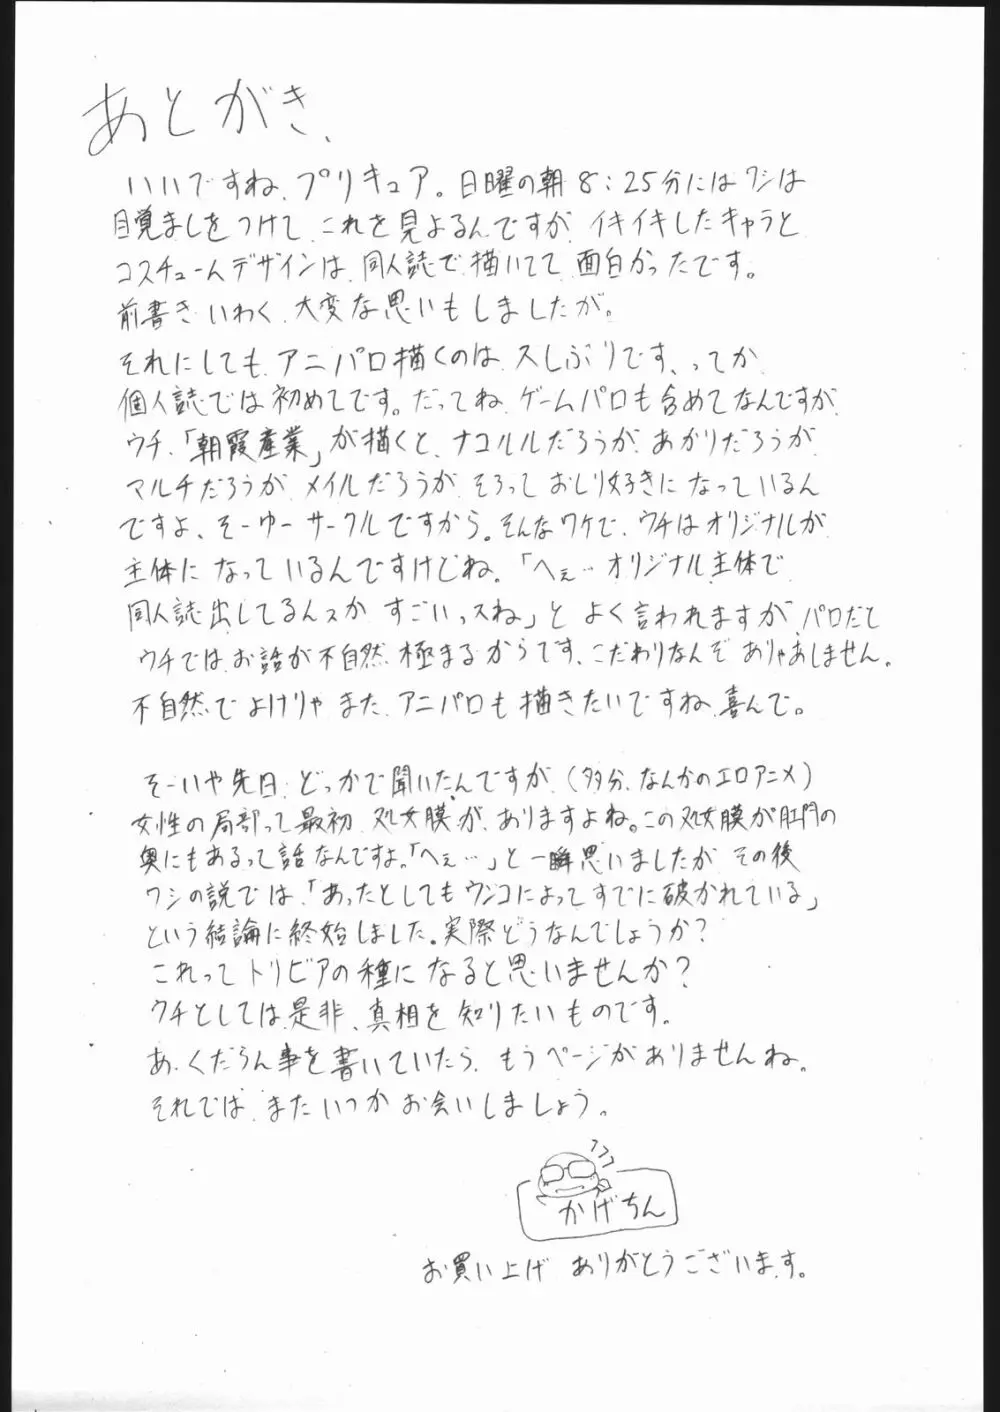 あとがき、
いいですね、プリキュア。日曜の朝8:25分にはワシは
目覚ましをつけて、これを見よるんですが、イキイキしたキャラと
コスチュームデザインは、同人誌で描いてて、面白かったです。
前書きいわく、大変な思いもしましたが。
それにしても、アニパロ描くのは、久しぶりです、ってか
個人誌では初めてです。だってね、ゲームパロも含めてなんですが、
ウチ、「朝霞産業」が描くと、ナコルルだろうが、あかりだろうが、
マルチだろうが、メイルだろうが、そろっておしり好きになっているん
ですよ、そーゆーサークルですから。そんなワケで、ウチはオリジナルが
主体になっているんですけどね。「へぇ…オリジナル主体で
同人誌出してるんスか、すごいっスね」と、よく言われますが、パロだと
ウチでは、お話が不自然極まるからです、こだわりなんぞ、ありゃあしません。
不自然でよけりゃ、また、アニパロも描きたいですね、喜んで。
そーいや先日、どっかで聞いたんですが、(多分、なんかのエロアニメ)
女性の局部って最初、処女膜が、ありますよね。この処女膜が肛門の
奥にもあるって話なんですよ。「へぇ…」と一瞬思いましたが、その後
ワシの説では、「あったとしてもウンコによってすでに破かれている」
という結論に終始しました。実際どうなんでしょうか?
これってトリビアの種になると思いませんか?
ウチとしては是非、真相を知りたいものです。
あ、くだらん事を書いていたら、もうページがありませんね。
それでは、またいつかお会いしましょう。
フフフ
かげちん
お買い上げ ありがとうございます。